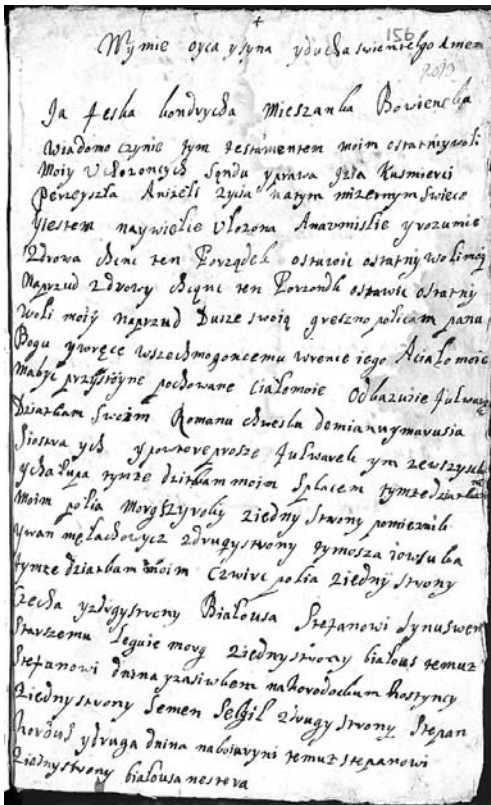 156
Wÿ mie oyca ysyna yducha swientelgo Amen
2013
Ja feska bondrycha Mieszanka Bowienska
Wiadomo czynie tym testamentem moim ostatniy woli
Moiy Uchozoncych Sondu yprawa Izia Kusmierci
Perzeyszla Anizeli zycia natym mizernym swiece
Yiestem naywielie Vlozona Anaumislie yrozumie
Zdrowa chcac ten Porządek ostawic ostatny woli moiy
Naprzud zdrowy chcąnc ten Porzondk ostawic ostatny
Woli moiy Naprzud Dusze swoią greszno policam panu
Bogu ywręce wszechmogoncemu wrence iego Aciało moie
Mabyc przystoyne pochowane Ciałomoie Odbazuie fulwark
Dziatkam Swoim Romanu chweska demianu ymarusia
Siostra ych yposwore prosze fulwarek ym zewszyskim
ychałupa tymze dziatkam moim Splacem tymzedziatkam
Moim polia morgszyroky ziedny Strony pomieznik
Ywan mełachowycz zdrugystrony tymosza iowsuba
tymze dziatkam moim Czwirc polia ziedny strony
Czecha yzdrugystrony Białousa Stefanowi Synuswemu
Starszemu Leguie morg ziednystrony białous temuz
Stefanowi dnina yzasiwkem nahorodockum Hostyncy
Ziednystrony Semen Selgil zdrugy Strony Stepan
Horóus ydruga dnina naboiaryni temuz stepanowi
Ziednystrony białousa nestera